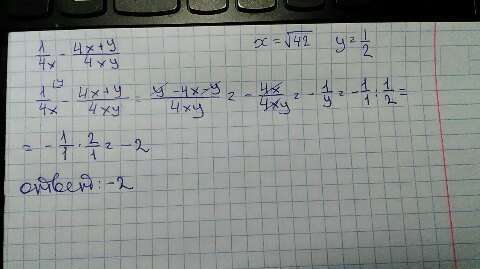 1/4x - 4x+y/4xy x = √42 y = 1/2
1/4x ^y - 4x+y/4xy = y-4x-y/4xy = - 4x/4xy = - 1/y = - 1/1 : 1/2 =
= - 1/1 · 2/1 = -2
ответ: -2